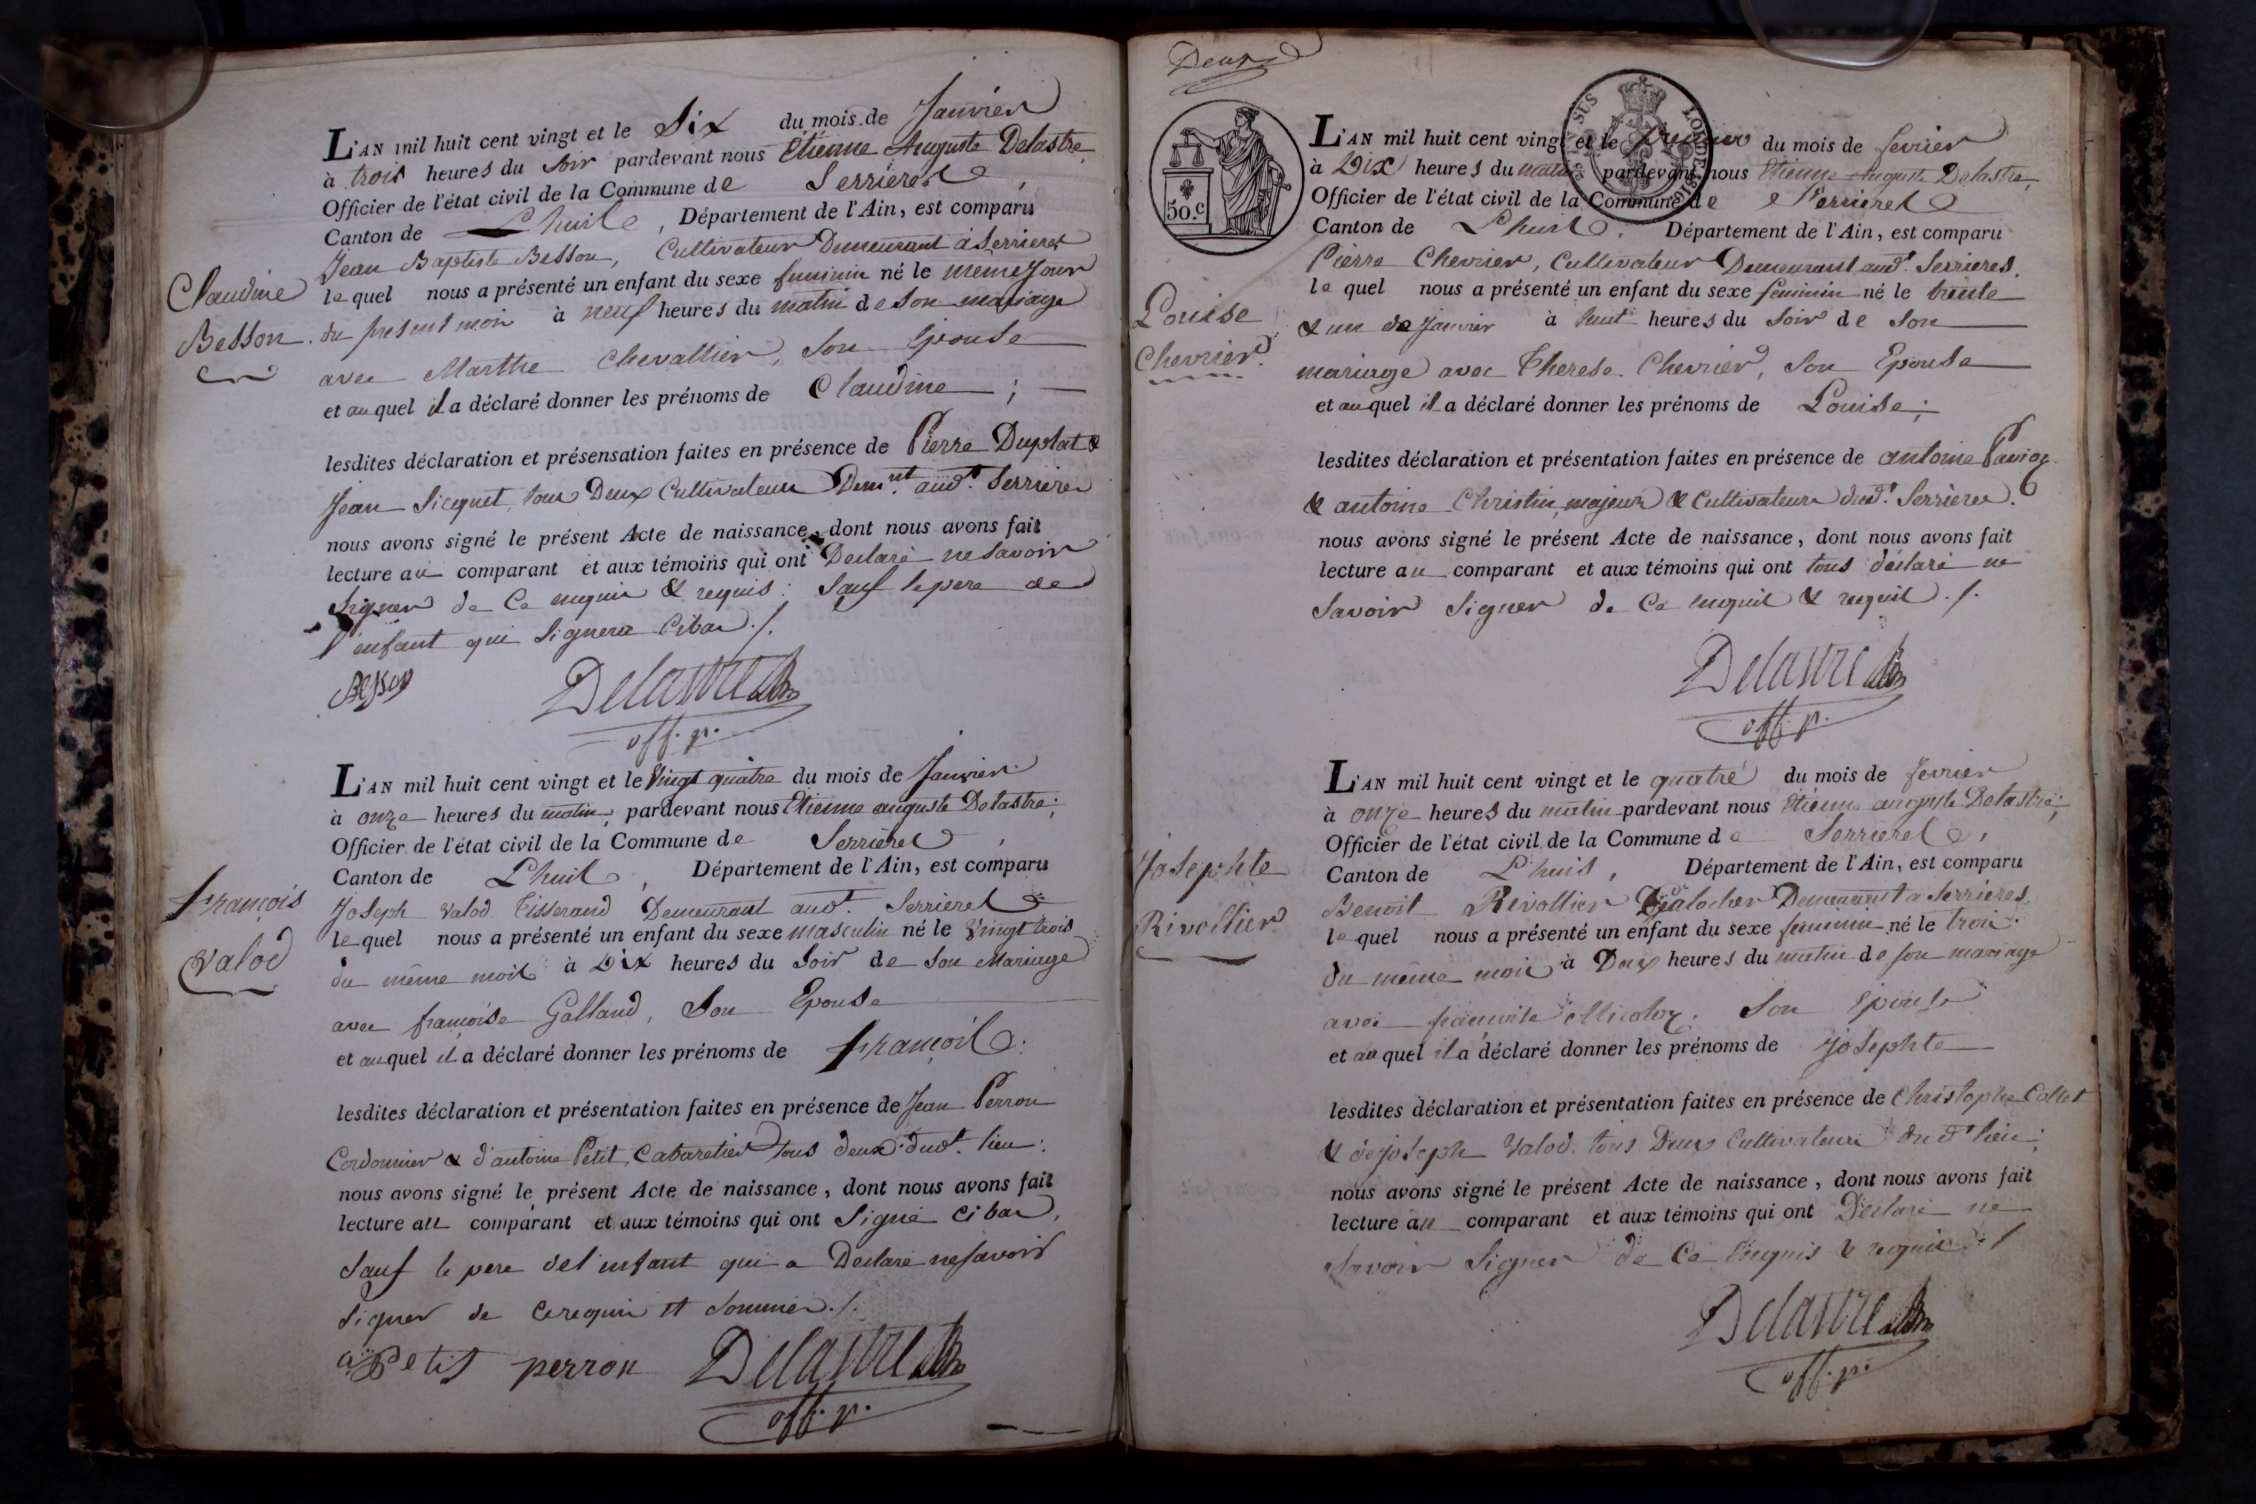 L'AN mil huit cent vingt et le Six du mois de Janvier
à trois heures du Soir pardevant nous Etienne Auguste Delastre,
Officier de l'état civil de la Commune de Serrieres,
Canton de Lhuis, Département de l'Ain, est comparu
Jean Baptiste Besson, Cultivateur Demeurant à Serrieres
Claudine
Besson.
lequel nous a présenté un enfant du sexe feminin né le même Jour
du present mois à neuf heures du matin de son mariage
avec Marthe Chevallier, Son Epouse
et auquel il a déclaré donner les prénoms de Claudine;
lesdites déclaration et présensation faites en présence de Pierre Duplat &
Jean Sicquet, tous Deux Cultivateurs Demnt. audt. Serrieres
nous avons signé le présent Acte de naissance, dont nous avons fait
lecture au comparant et aux témoins qui ont Declaré ne savoir
Signer de Ce enquis & requis: Sauf le pere de
l'enfant qui Signera Cibas ./.
Besson Delastre
off. p.
L'AN mil huit cent vingt et le Vingt quatre du mois de Janvier
à onze heures du matin, pardevant nous Etienne auguste Delastre;
Officier de l'état civil de la Commune de Serrieres,
Canton de Lhuis, Département de l'Ain, est comparu
François
Valod
Joseph Valod Tisserand Demeurant audt. Serrieres
lequel nous a présenté un enfant du sexe masculin né le Vingt trois
du même mois à Dix heures du Soir de Son Mariage
avec françoise Galland, Son Epouse
et auquel il a déclaré donner les prénoms de François.
lesdites déclaration et présentation faites en présence de Jean Perron
Cordonnier & d'antoine Petit, Cabaretier tous deux dudt. lieu:
nous avons signé le présent Acte de naissance, dont nous avons fait
lecture au comparant et aux témoins qui ont Signé Cibas,
Sauf le pere del'enfant qui a Declaré ne savoir
Signer de ce requis et sommé ./.
a Petit perron Delastre
off. p.
Deux
50.C
L'AN mil huit cent vingt et le premier du mois de fevrier
à Dix heures du matin pardevant nous Etienne Auguste Delastre,
Officier de l'état civil de la Commune de Serrieres
Canton de Lhuis. Département de l'Ain, est comparu
Pierre Chevrier, Cultivateur Demeurant audt. Serrieres.
Louise
Chevrier.
lequel nous a présenté un enfant du sexe feminin né le trente
& un de Janvier à huit heures du Soir de Son
mariage avec Therese Chevrier, Son Epouse
et auquel il a déclaré donner les prénoms de Louise;
lesdites déclaration et présentation faites en présence de antoine Pavioz
& antoine Christin, majeurs & Cultivateurs dudt. Serrieres.
nous avons signé le présent Acte de naissance, dont nous avons fait
lecture au comparant et aux témoins qui ont tous déclaré ne
Savoir Signer de Ce enquis & requis ./.
Delastre
off. p.
L'AN mil huit cent vingt et le quatre du mois de fevrier
à onze heures du matin pardevant nous Etienne auguste Delastre;
Officier de l'état civil de la Commune de Serrieres,
Canton de Lhuis, Département de l'Ain, est comparu
Josephte
Rivollier
Benoit Rivollier Demeurant à Serrieres,
lequel nous a présenté un enfant du sexe feminin né le trois
du même mois à Deux heures du matin de son mariage
avec Son Epouse
et auquel il a déclaré donner les prénoms de Josephte
lesdites déclaration et présentation faites en présence de Christophe Collet
& de joseph Valod. tous Deux Cultivateurs dudt lieu;
nous avons signé le présent Acte de naissance, dont nous avons fait
lecture au comparant et aux témoins qui ont Déclaré ne
Savoir Signer de Ce Enquis & requis ./
Delastre
off. p.